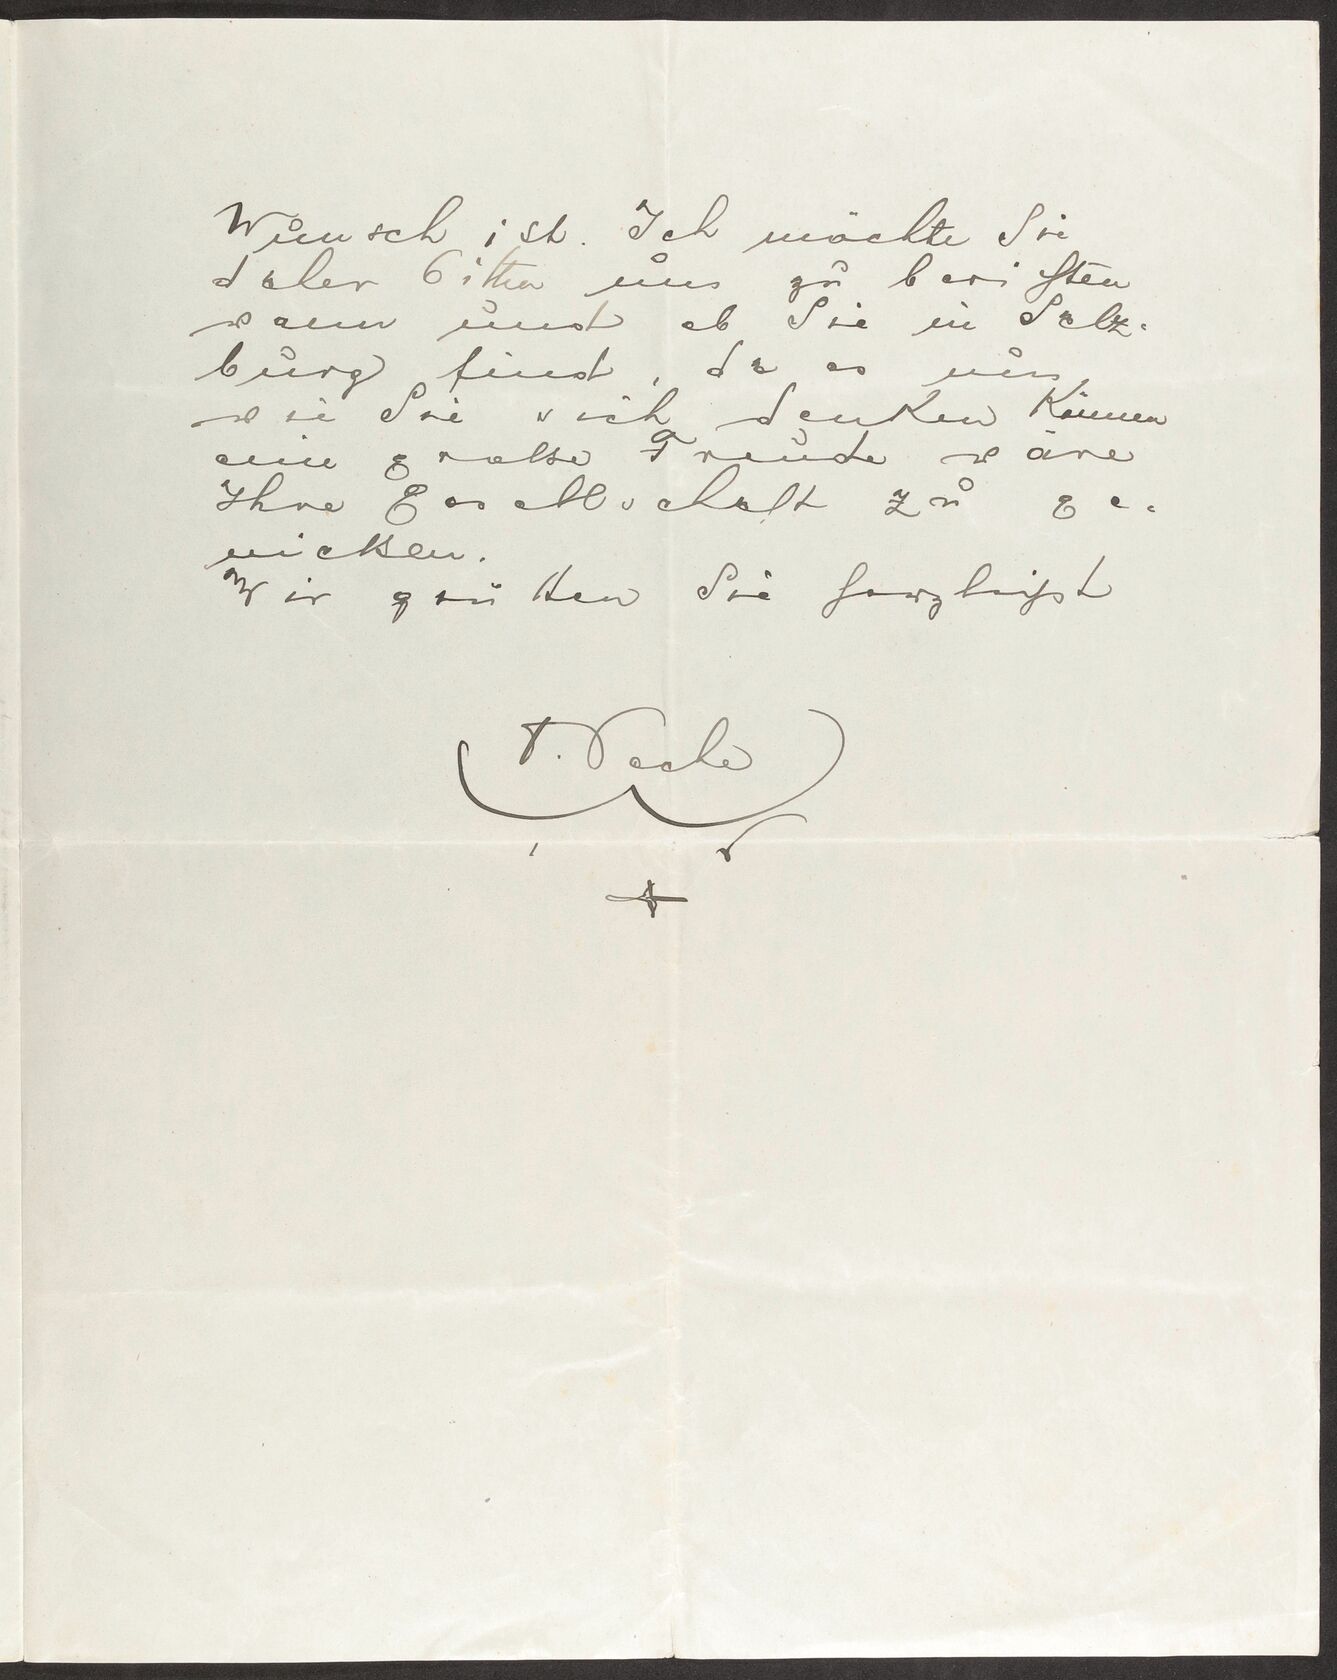 Wunsch ist. Ich möchte Sie
daher bitten uns zu berichten
wann und ob Sie in Salz-
burg sind, da es uns,
wie Sie sich denken können
eine grosse Freude wäre
Ihre Gesellschaft zu ge-
niessen.
Wir grüssen Sie herzlichst